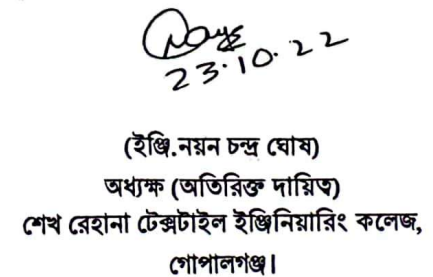 23.10.22
(ইঞ্জি.নয়ন চন্দ্র ঘোষ)
অধ্যক্ষ (অতিরিক্ত দায়িত্ব)
শেখ রেহানা টেক্সটাইল ইঞ্জিনিয়ারিং কলেজ,
গোপালগঞ্জ।